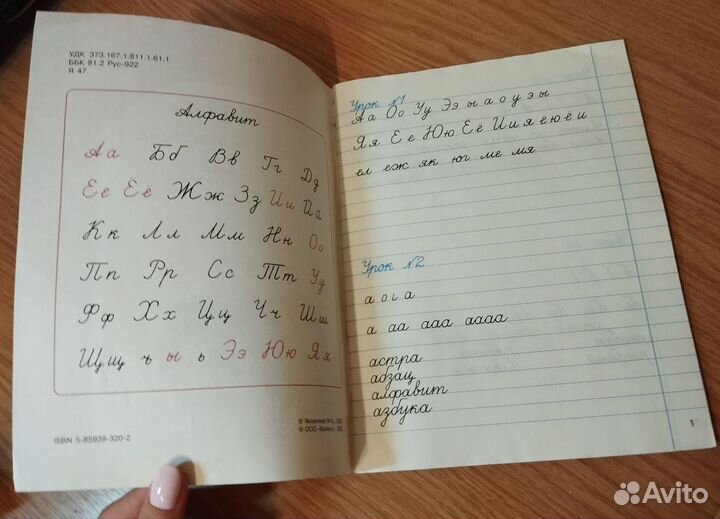 УДК 373.167.1:811.1.61.1
ББК 81.2 Рус-922
Я 47
Алфавит
Аа Бб Вв Гг Дд
Ее Ёё Жж Зз Ии Йй
Кк Лл Мм Нн Оо
Пп Рр Сс Тт Уу
Фф Хх Цц Чч Шш
Щщ ъ ы ь Ээ Юю Яя
© ООО
ISBN 5-85939-320-2
Урок №1
Аа Оо Уу Ээ ы а о у э ы
Яя Ее Юю Её Ии я е ю ё и
ел еж як юг ме мя
Урок №2
а о а
а аа ааа аааа
астра
абзац
алфавит
азбука
1
Avito